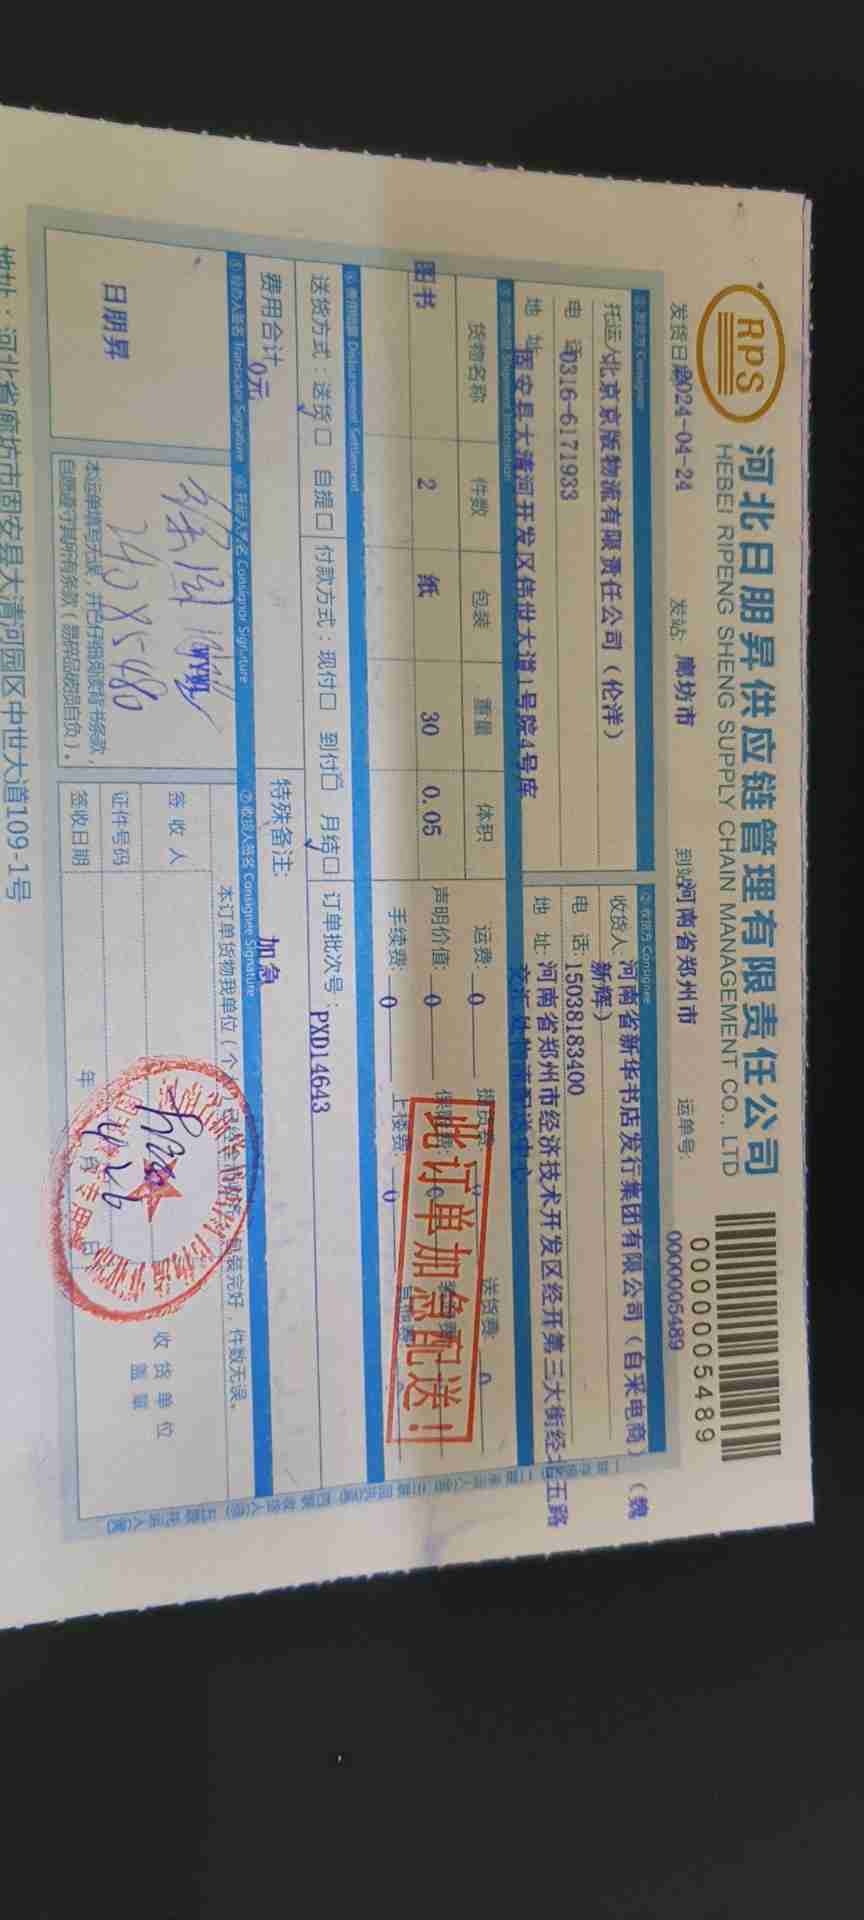 RPS
河北日朋昇供应链管理有限责任公司
HEBEI RIPENG SHENG SUPPLY CHAIN MANAGEMENT CO., LTD
0000005489
发货日期 2024-04-24 发站: 廊坊市 到站: 河南省郑州市 运单号: 0000005489
①发货方 Consigner ②收货方 Consignee
托运人: 北京京版物流有限责任公司(伦洋)
收货人: 河南省新华书店发行集团有限公司(自采电商)(魏
新辉)
电 话: 0316-6171933
电 话: 15038183400
地 址: 固安县大清河开发区伟世大道1号院4号库
地 址: 河南省郑州市经济技术开发区经开第三大街经北五路
交汇处物流配送中心
Shipment Information
货物名称 件数 包装 重量 体积
运费: 0 提货费: 0 送货费: 0
图书 2 纸 30 0.05
声明价值: 0 保险费: 0
手续费: 0 上楼费: 0
此订单加急配送!
④费用结算 Disbursement Settlement
送货方式: 送货□ 自提□ 付款方式: 现付□ 到付□ 月结□ 订单批次号: PXD14643
费用合计: 0元 特殊备注: 加急
⑤经办人签名 Transactor Signature ⑥托运人签名 Consignor Signature ⑦收货人签名 Consignee Signature
日朋昇
本运单填写无误,并已仔细阅读背书条款,
自愿遵守其所有条款(易碎品破损自负)。
本订单货物我单位(个
包装完好,件数无误。
签收人
证件号码
签收日期 年
收货单位
盖章
地址:河北省廊坊市固安县大清河园区中世大道109-1号